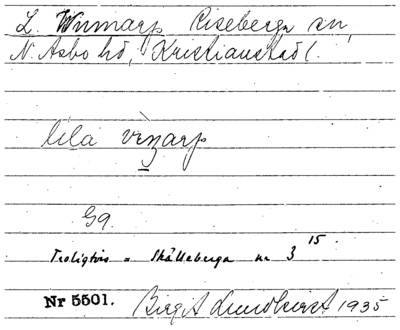 L. Winnarp Riseberga sn,
N. Åsbo hd, Kristianstad l.
lila vìnarp
Gg.
Troligtvis = Skälleberga nr 3 15.
Nr 5501. Birgit Lundkvist 1935